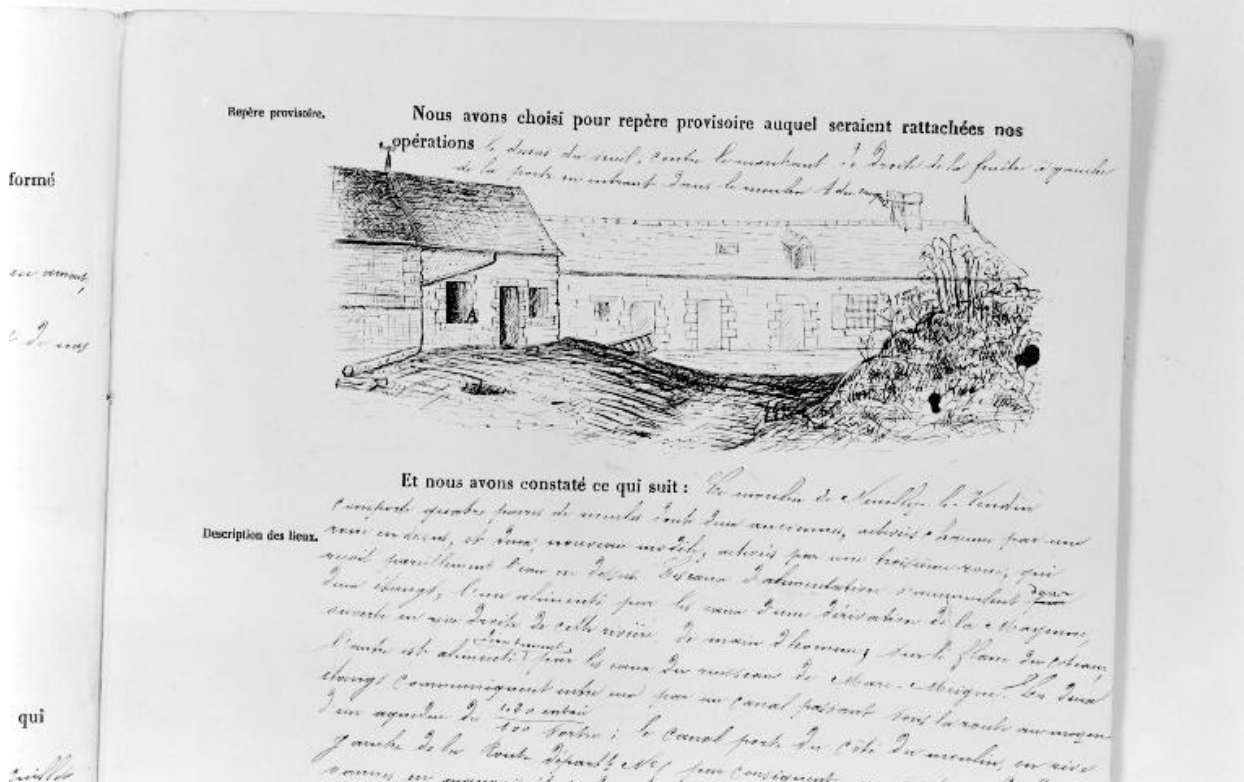 formé
en amont,
de nos
qui
Repère provisoire.
Nous avons choisi pour repère provisoire auquel seraient rattachées nos
opérations le dessus du seuil, contre le montant de droite de la fenêtre à gauche
de la porte en entrant dans le moulin
A
Et nous avons constaté ce qui suit : Le moulin de Neuilly-le-Vendin
Description des lieux.
comporte quatre paires de meules dont deux anciennes, activées chacune par une
roue en dessus, et deux, nouveau modèle, activées par une troisième roue, qui
reçoit pareillement l'eau en dessus. Les eaux d'alimentation
deux étangs, l'un alimenté par les eaux d'une dérivation de la Mayenne,
ouverte en rive droite de cette rivière, de main d'homme, sur le flanc du coteau,
directement
l'autre est alimenté par les eaux du ruisseau de Les deux
étangs communiquent entre eux par un canal passant sous la route au moyen
d'un aqueduc de ; le canal porte du côté du moulin, en rive
gauche de la Route départ.le N° par conséquent
vannes en